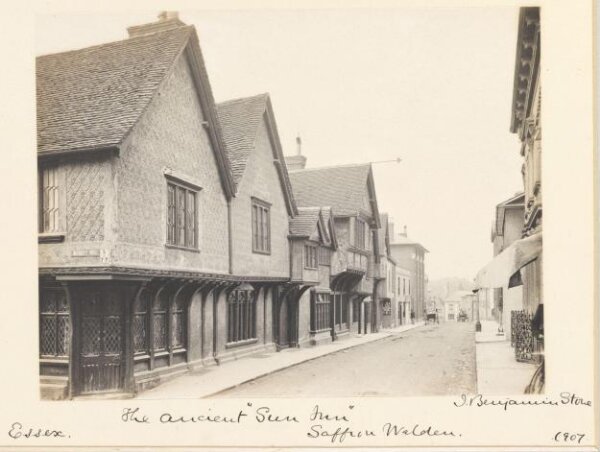 J. Benjamin Stone
The Ancient "Sun Inn"
Essex.
Saffron Walden.
1907